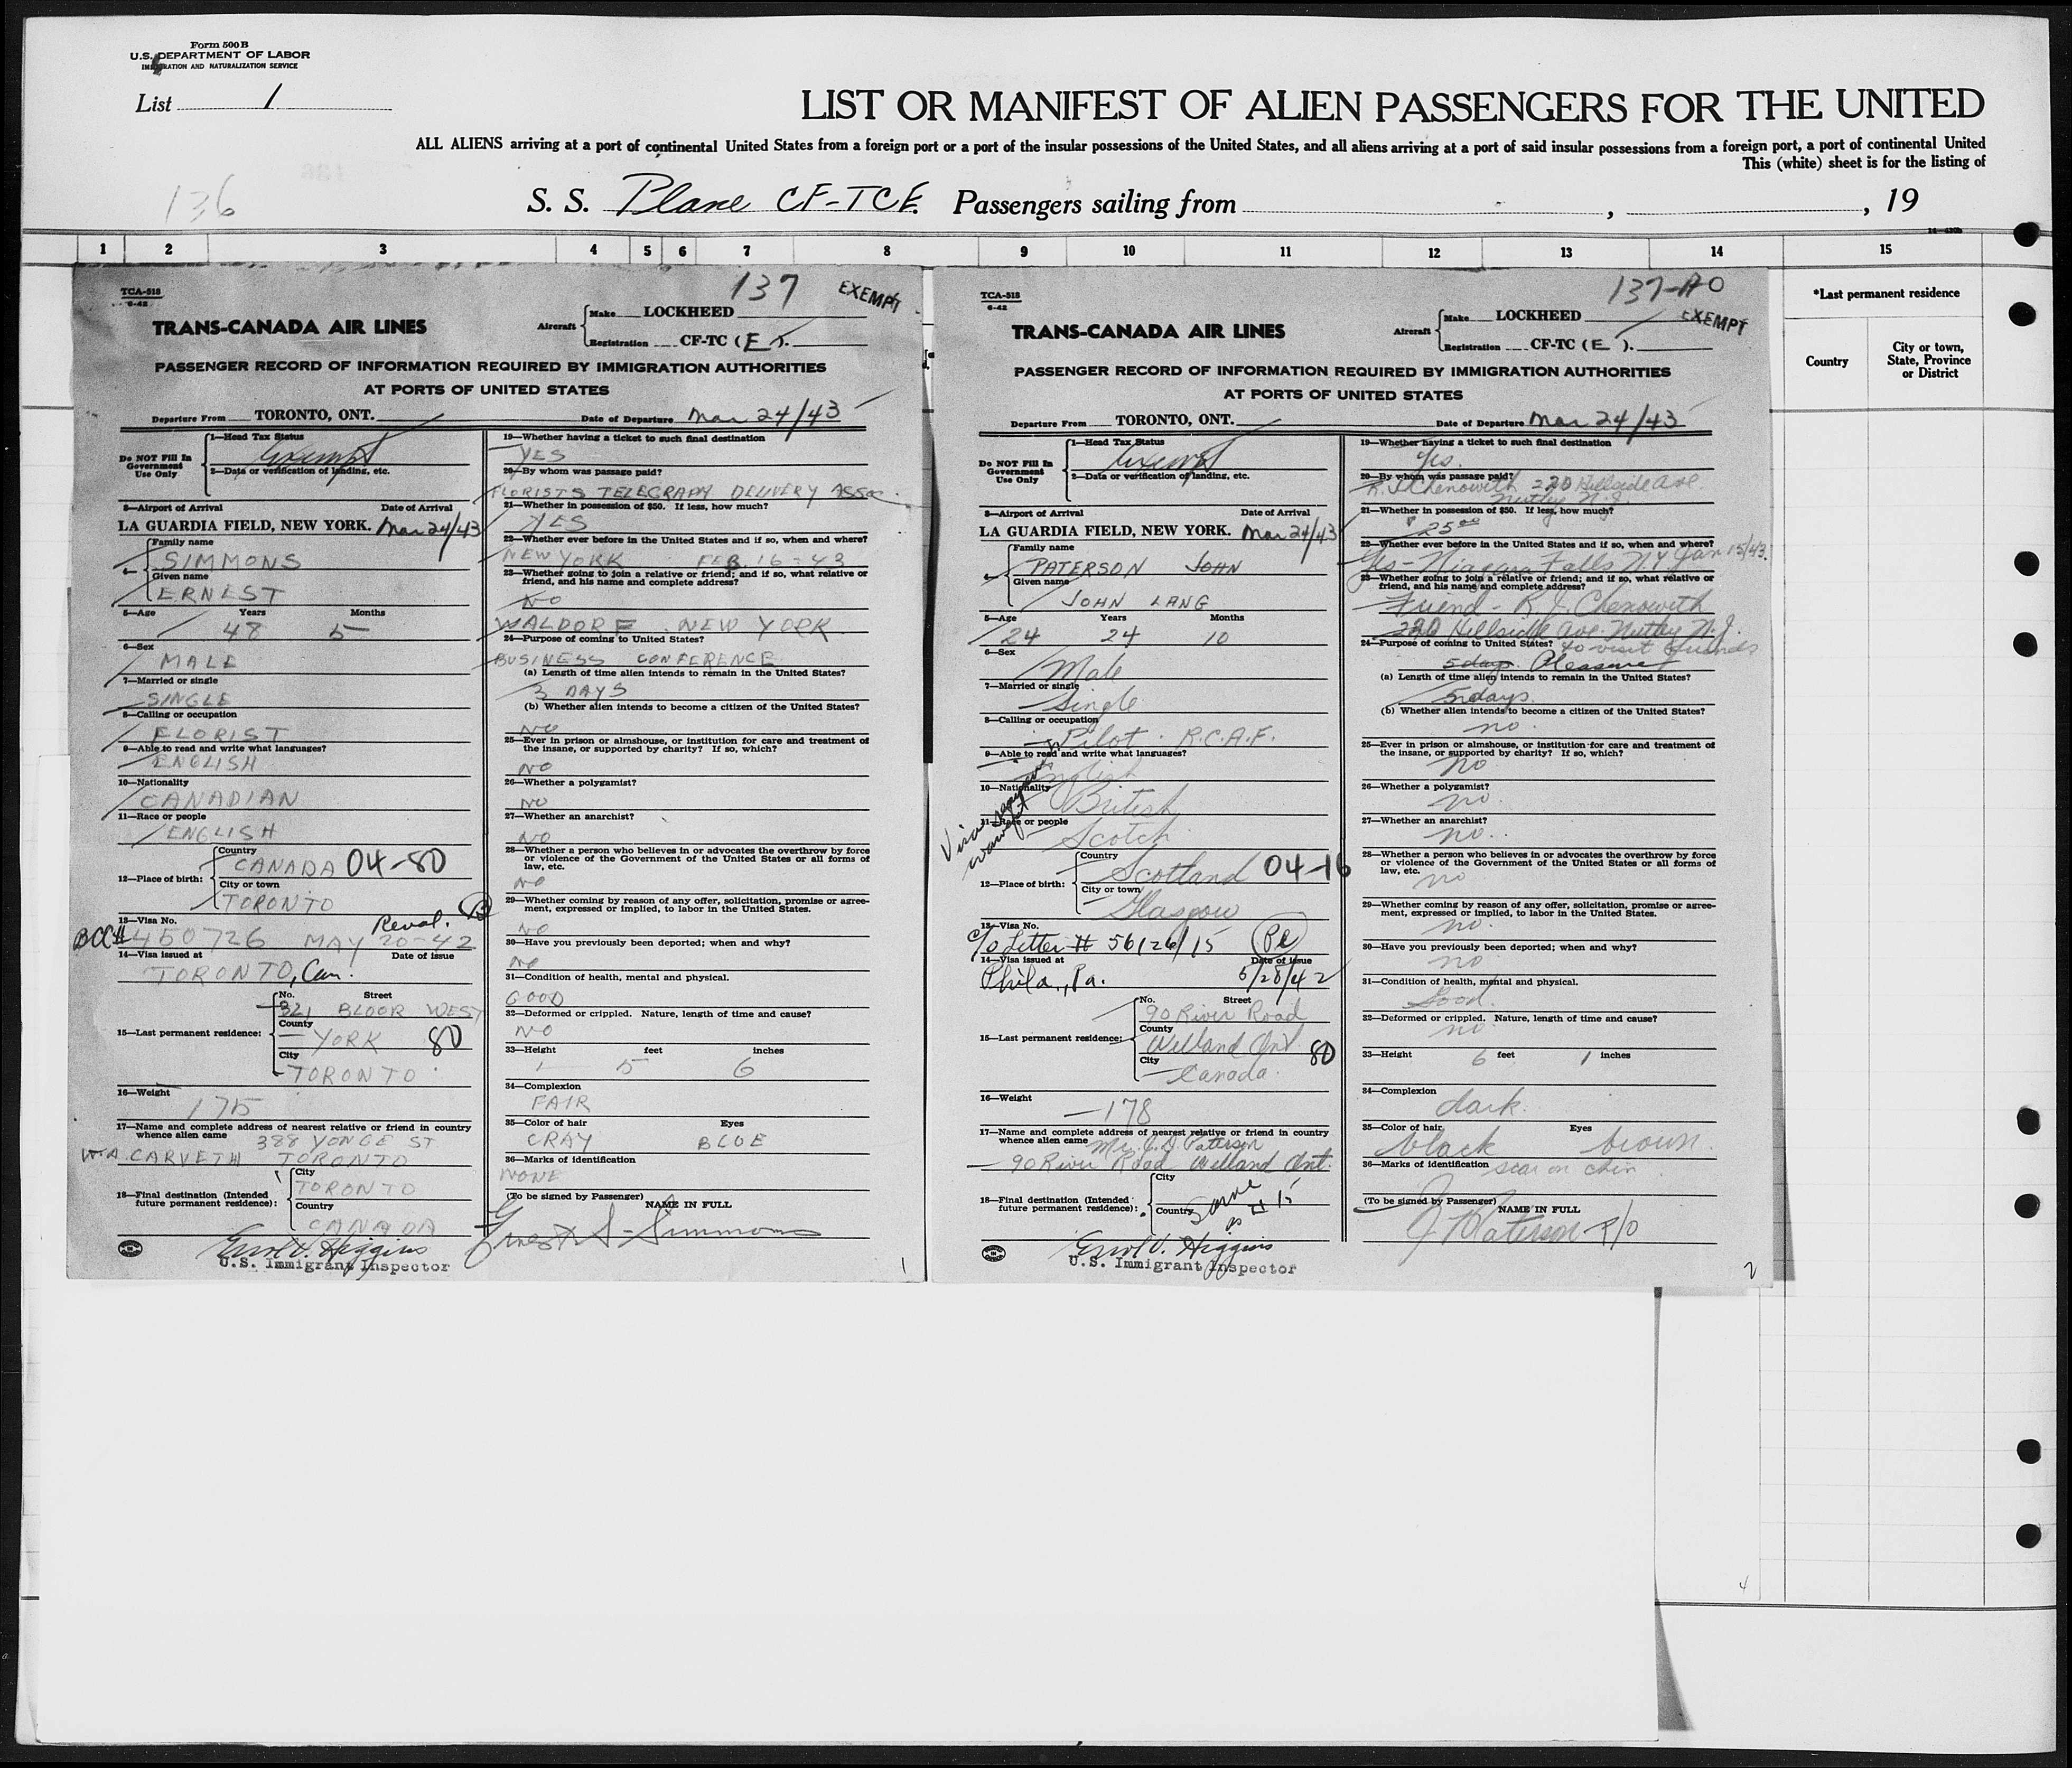 Form 500 B
U.S. DEPARTMENT OF LABOR
IMMIGRATION AND NATURALIZATION SERVICE
List 1
LIST OR MANIFEST OF ALIEN PASSENGERS FOR THE UNITED
ALL ALIENS arriving at a port of continental United States from a foreign port or a port of the insular possessions of the United States, and all aliens arriving at a port of said insular possessions from a foreign port, a port of continental United
This (white) sheet is for the listing of
136
S. S. Plane CF-TCE Passengers sailing from , , 19
1 2 3 4 5 6 7 8 9 10 11 12 13 14 15
*Last permanent residence
Country
City or town, State, Province or District
TCA-518
6-42
137
EXEMPT
TRANS-CANADA AIR LINES
Aircraft
Make LOCKHEED
Registration CF-TC (E).
PASSENGER RECORD OF INFORMATION REQUIRED BY IMMIGRATION AUTHORITIES
AT PORTS OF UNITED STATES
Departure From TORONTO, ONT. Date of Departure Mar 24/43
Do NOT Fill In Government Use Only
1—Head Tax Status
Exempt
2—Data or verification of landing, etc.
3—Airport of Arrival Date of Arrival
LA GUARDIA FIELD, NEW YORK. Mar 24/43
4—
Family name
SIMMONS
Given name
ERNEST
5—Age Years Months
48 5
6—Sex
MALE
7—Married or single
SINGLE
8—Calling or occupation
FLORIST
9—Able to read and write what languages?
ENGLISH
10—Nationality
CANADIAN
11—Race or people
ENGLISH
12—Place of birth:
Country
CANADA 04-80
City or town
TORONTO
13—Visa No. Reval. B
BCC# 450726 MAY 20-42
14—Visa issued at Date of issue
TORONTO, Can.
15—Last permanent residence:
No. Street
321 BLOOR WEST
County
YORK 80
City
TORONTO
16—Weight
175
17—Name and complete address of nearest relative or friend in country
whence alien came 388 YONGE ST
W.A. CARVETH TORONTO
18—Final destination (Intended future permanent residence):
City
TORONTO
Country
CANADA
Errol V. Higgins
U.S. Immigrant Inspector
19—Whether having a ticket to such final destination
YES
20—By whom was passage paid?
FLORISTS TELEGRAPH DELIVERY ASSOC.
21—Whether in possession of $50. If less, how much?
YES
22—Whether ever before in the United States and if so, when and where?
NEW YORK FEB. 16-43
23—Whether going to join a relative or friend; and if so, what relative or
friend, and his name and complete address?
NO
WALDORF NEW YORK
24—Purpose of coming to United States?
BUSINESS CONFERENCE
(a) Length of time alien intends to remain in the United States?
3 DAYS
(b) Whether alien intends to become a citizen of the United States?
NO
25—Ever in prison or almshouse, or institution for care and treatment of
the insane, or supported by charity? If so, which?
NO
26—Whether a polygamist?
NO
27—Whether an anarchist?
NO
28—Whether a person who believes in or advocates the overthrow by force
or violence of the Government of the United States or all forms of
law, etc.
NO
29—Whether coming by reason of any offer, solicitation, promise or agree-
ment, expressed or implied, to labor in the United States.
NO
30—Have you previously been deported; when and why?
NO
31—Condition of health, mental and physical.
GOOD
32—Deformed or crippled. Nature, length of time and cause?
NO
33—Height feet inches
5 6
34—Complexion
FAIR
35—Color of hair Eyes
GRAY BLUE
36—Marks of identification
NONE
(To be signed by Passenger) NAME IN FULL
Ernest S. Simmons
1
TCA-518
6-42
137-A0
EXEMPT
TRANS-CANADA AIR LINES
Aircraft
Make LOCKHEED
Registration CF-TC (E).
PASSENGER RECORD OF INFORMATION REQUIRED BY IMMIGRATION AUTHORITIES
AT PORTS OF UNITED STATES
Departure From TORONTO, ONT. Date of Departure Mar 24/43
Do NOT Fill In Government Use Only
1—Head Tax Status
Exempt
2—Data or verification of landing, etc.
3—Airport of Arrival Date of Arrival
LA GUARDIA FIELD, NEW YORK. Mar 24/43
4—
Family name
PATERSON JOHN
Given name
JOHN LANG
5—Age Years Months
24 24 10
6—Sex
Male
7—Married or single
Single
8—Calling or occupation
Pilot. R.C.A.F.
9—Able to read and write what languages?
English
10—Nationality
British
11—Race or people
Scotch
Visa
12—Place of birth:
Country
Scotland 04-16
City or town
Glasgow
13—Visa No.
C/O Letter # 56126/15
14—Visa issued at Date of issue
Phila., Pa. 5/28/42
15—Last permanent residence:
No. Street
90 River Road
County
Welland Ont 80
City
Canada
16—Weight
178
17—Name and complete address of nearest relative or friend in country
whence alien came Paterson
90 River Road Welland Ont.
18—Final destination (Intended future permanent residence):
City
Country
Same as # 15
Errol V. Higgins
U.S. Immigrant Inspector
19—Whether having a ticket to such final destination
Yes.
20—By whom was passage paid?
R. J. Chenowith 220 Hillside Ave.
Nutley N.J.
21—Whether in possession of $50. If less, how much?
$25.00
22—Whether ever before in the United States and if so, when and where?
Yes - Niagara Falls N.Y. Jan 15/43.
23—Whether going to join a relative or friend; and if so, what relative or
friend, and his name and complete address?
Friend - R. J. Chenowith
220 Hillside Ave. Nutley N.J.
24—Purpose of coming to United States? to visit friends
5 days. Pleasure
(a) Length of time alien intends to remain in the United States?
5 days.
(b) Whether alien intends to become a citizen of the United States?
no.
25—Ever in prison or almshouse, or institution for care and treatment of
the insane, or supported by charity? If so, which?
no
26—Whether a polygamist?
no.
27—Whether an anarchist?
no.
28—Whether a person who believes in or advocates the overthrow by force
or violence of the Government of the United States or all forms of
law, etc.
no
29—Whether coming by reason of any offer, solicitation, promise or agree-
ment, expressed or implied, to labor in the United States.
no.
30—Have you previously been deported; when and why?
no
31—Condition of health, mental and physical.
Good.
32—Deformed or crippled. Nature, length of time and cause?
no.
33—Height 6 feet 1 inches
34—Complexion
dark.
35—Color of hair Eyes
black brown.
36—Marks of identification scar on chin
(To be signed by Passenger) NAME IN FULL
J Paterson P/O
2
4